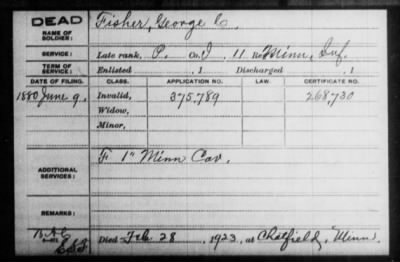 DEAD
NAME OF SOLDIER:
Fisher, George C.
SERVICE:
Late rank, P. Co. I, 11 Reg. Minn. Inf.
TERM OF SERVICE:
Enlisted , 1 Discharged , 1
DATE OF FILING. CLASS. APPLICATION NO. LAW. CERTIFICATE NO.
1880 June 9. Invalid, 375,789 268,730
Widow,
Minor,
ADDITIONAL SERVICES:
F 1" Minn Cav.
REMARKS:
Died Feb 28 1923, at Chatfield, Minn.